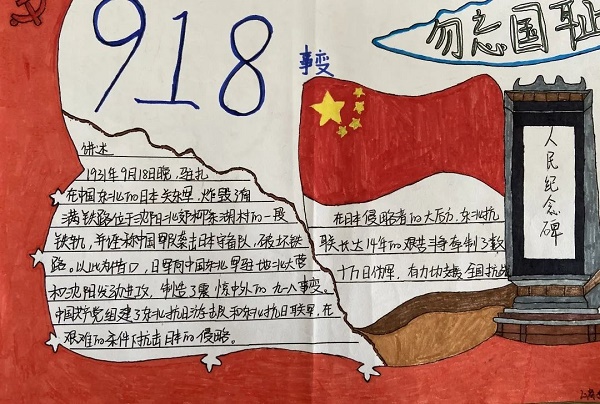 918
事变
勿忘国耻
讲述
1931年9月18日晚,驻扎
在中国东北的日本关东军,炸毁了南
满铁路位于沈阳北郊柳条湖村的一段
铁轨,并诬称中国军队袭击日本守备队,破坏铁
路。以此为借口,日军向中国东北军驻地北大营
和沈阳发动进攻,制造了震惊中外的九一八事变。
中国共产党组建了东北抗日游击队和东北抗日联军,在
艰难的条件下抗击日本的侵略。
在日本侵略者的大后方,东北抗
联长达14年的艰苦斗争牵制了数
十万日伪军,有力地支援全国抗战
人民纪念碑